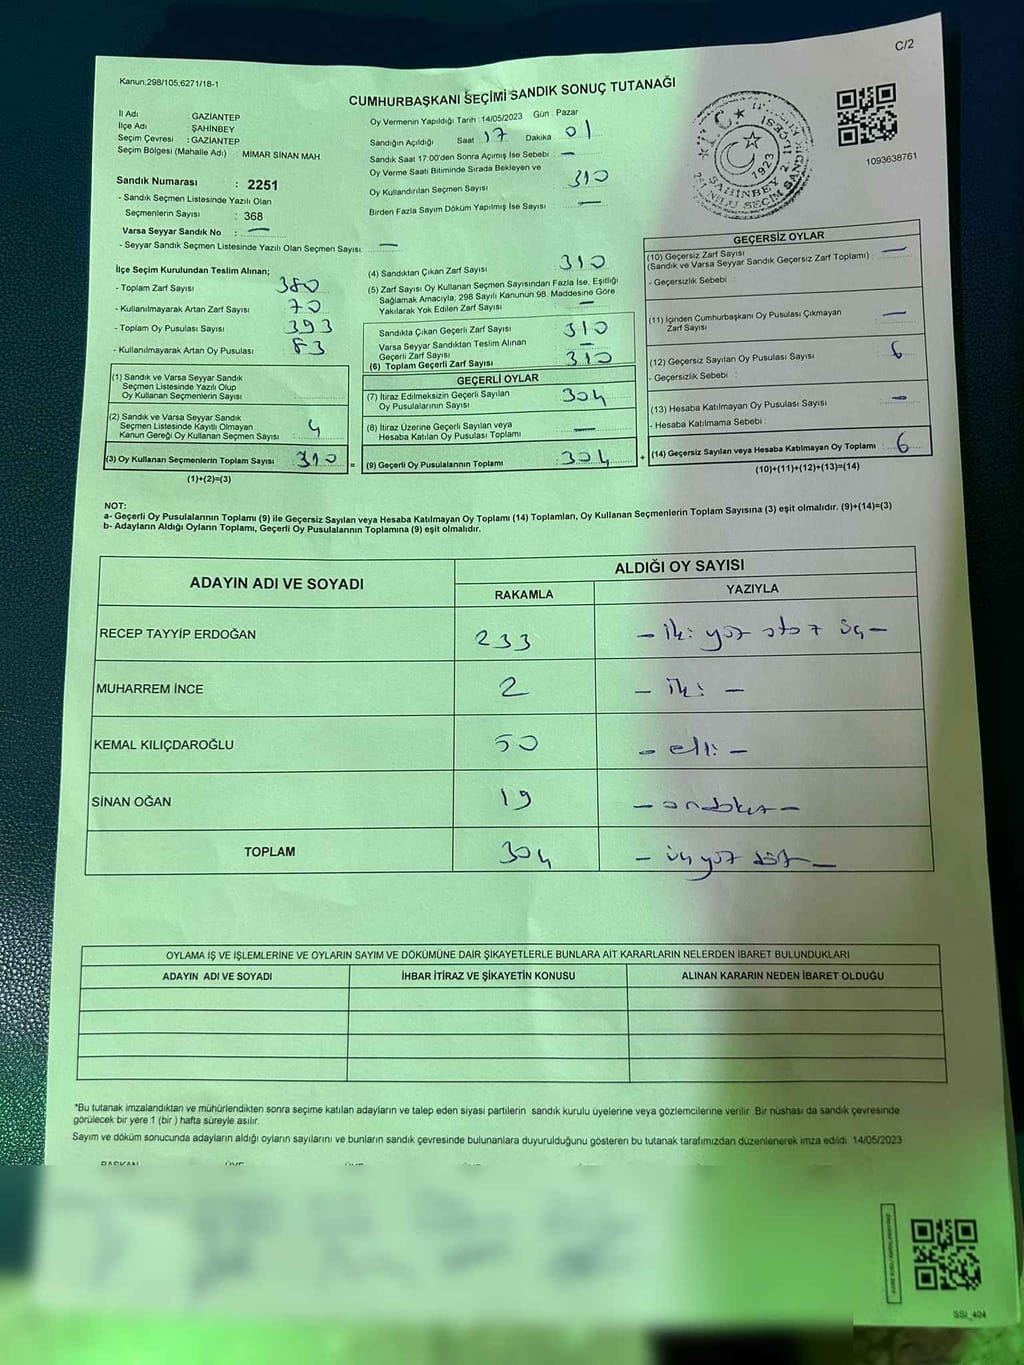 C/2
Kanun;298/105;6271/18-1
CUMHURBAŞKANI SEÇİMİ SANDIK SONUÇ TUTANAĞI
İl Adı : GAZİANTEP
İlçe Adı : ŞAHİNBEY
Seçim Çevresi : GAZİANTEP
Seçim Bölgesi (Mahalle Adı) : MİMAR SİNAN MAH
Sandık Numarası : 2251
- Sandık Seçmen Listesinde Yazılı Olan
Seçmenlerin Sayısı : 368
Varsa Seyyar Sandık No : —
- Seyyar Sandık Seçmen Listesinde Yazılı Olan Seçmen Sayısı: —
Oy Vermenin Yapıldığı Tarih :14/05/2023 Gün : Pazar
Sandığın Açıldığı Saat 17 Dakika 01
Sandık Saat 17:00'den Sonra Açımış İse Sebebi : —
Oy Verme Saati Bitiminde Sırada Bekleyen ve
Oy Kullandırılan Seçmen Sayısı 310
Birden Fazla Sayım Döküm Yapılmış İse Sayısı : —
T.C.
1923
1093638761
İlçe Seçim Kurulundan Teslim Alınan;
- Toplam Zarf Sayısı : 380
- Kullanılmayarak Artan Zarf Sayısı : 70
- Toplam Oy Pusulası Sayısı : 393
- Kullanılmayarak Artan Oy Pusulası : 83
(1) Sandık ve Varsa Seyyar Sandık
Seçmen Listesinde Yazılı Olup
Oy Kullanan Seçmenlerin Sayısı :
(2) Sandık ve Varsa Seyyar Sandık
Seçmen Listesinde Kayıtlı Olmayan
Kanun Gereği Oy Kullanan Seçmen Sayısı : 4
(3) Oy Kullanan Seçmenlerin Toplam Sayısı : 310 =
(1)+(2)=(3)
(4) Sandıktan Çıkan Zarf Sayısı : 310
(5) Zarf Sayısı Oy Kullanan Seçmen Sayısından Fazla İse, Eşitliği
Sağlamak Amacıyla; 298 Sayılı Kanunun 98. Maddesine Göre
Yakılarak Yok Edilen Zarf Sayısı : —
Sandıkta Çıkan Geçerli Zarf Sayısı : 310
Varsa Seyyar Sandıktan Teslim Alınan
Geçerli Zarf Sayısı : —
(6) Toplam Geçerli Zarf Sayısı : 310
GEÇERLİ OYLAR
(7) İtiraz Edilmeksizin Geçerli Sayılan
Oy Pusulalarının Sayısı : 304
(8) İtiraz Üzerine Geçerli Sayılan veya
Hesaba Katılan Oy Pusulası Toplamı : —
(9) Geçerli Oy Pusulalarının Toplamı : 304 +
GEÇERSİZ OYLAR
(10) Geçersiz Zarf Sayısı
(Sandık ve Varsa Seyyar Sandık Geçersiz Zarf Toplamı) : —
- Geçersizlik Sebebi :
(11) İçinden Cumhurbaşkanı Oy Pusulası Çıkmayan
Zarf Sayısı : —
(12) Geçersiz Sayılan Oy Pusulası Sayısı : 6
- Geçersizlik Sebebi :
(13) Hesaba Katılmayan Oy Pusulası Sayısı : —
- Hesaba Katılmama Sebebi :
(14) Geçersiz Sayılan veya Hesaba Katılmayan Oy Toplamı : 6
(10)+(11)+(12)+(13)=(14)
NOT:
a- Geçerli Oy Pusulalarının Toplamı (9) ile Geçersiz Sayılan veya Hesaba Katılmayan Oy Toplamı (14) Toplamları, Oy Kullanan Seçmenlerin Toplam Sayısına (3) eşit olmalıdır. (9)+(14)=(3)
b- Adayların Aldığı Oyların Toplamı, Geçerli Oy Pusulalarının Toplamına (9) eşit olmalıdır.
ADAYIN ADI VE SOYADI ALDIĞI OY SAYISI
RAKAMLA YAZIYLA
RECEP TAYYİP ERDOĞAN 233 — iki yüz otuz üç —
MUHARREM İNCE 2 — iki —
KEMAL KILIÇDAROĞLU 50 — elli —
SİNAN OĞAN 19 — ondokuz —
TOPLAM 304 — üç yüz dört —
OYLAMA İŞ VE İŞLEMLERİNE VE OYLARIN SAYIM VE DÖKÜMÜNE DAİR ŞİKAYETLERLE BUNLARA AİT KARARLARIN NELERDEN İBARET BULUNDUKLARI
ADAYIN ADI VE SOYADI İHBAR İTİRAZ VE ŞİKAYETİN KONUSU ALINAN KARARIN NEDEN İBARET OLDUĞU
*Bu tutanak imzalandıktan ve mühürlendikten sonra seçime katılan adayların ve talep eden siyasi partilerin sandık kurulu üyelerine veya gözlemcilerine verilir. Bir nüshası da sandık çevresinde
görülecek bir yere 1 (bir) hafta süreyle asılır.
Sayım ve döküm sonucunda adayların aldığı oyların sayılarını ve bunların sandık çevresinde bulunanlara duyurulduğunu gösteren bu tutanak tarafımızdan düzenlenerek imza edildi. 14/05/2023
BAŞKAN ÜYE ÜYE ÜYE ÜYE
SSI_404